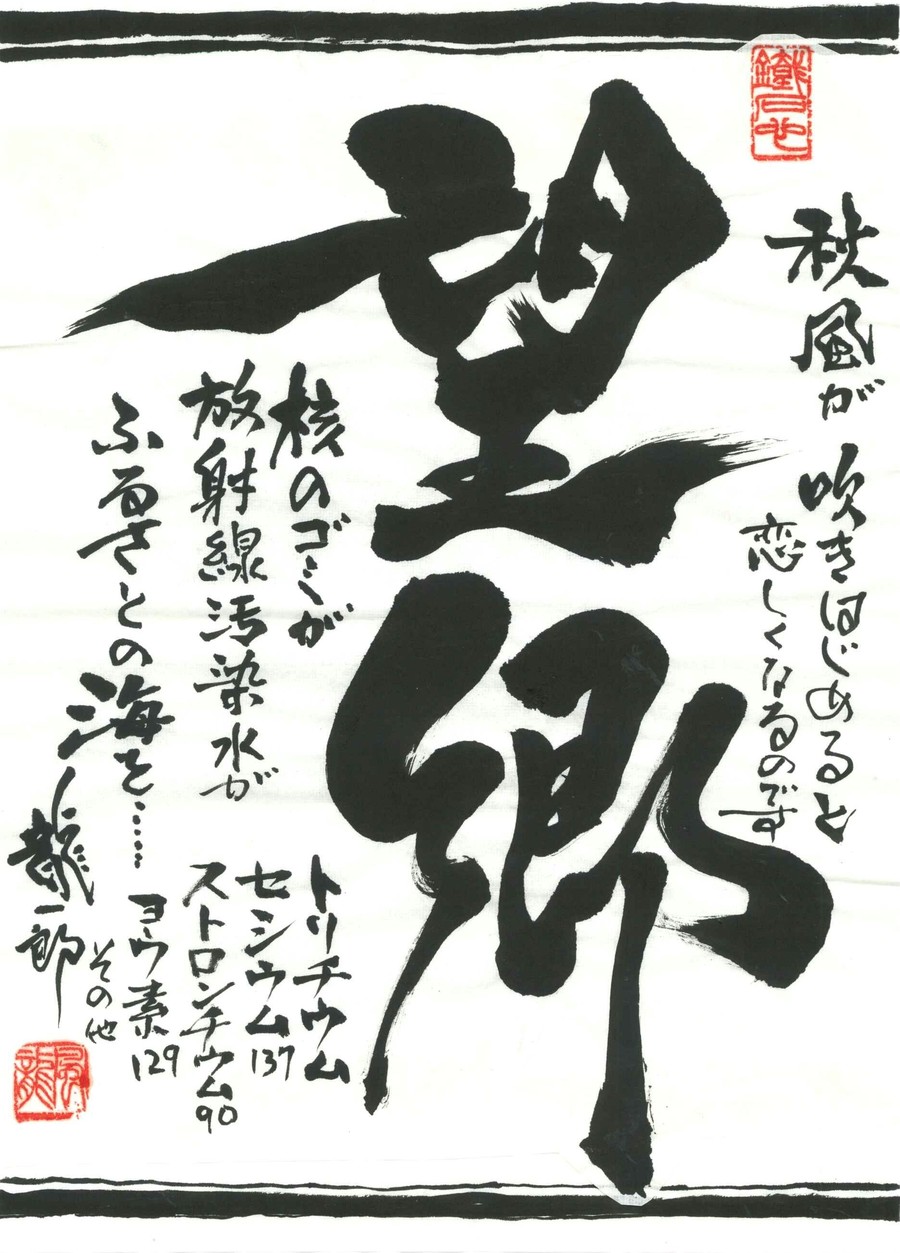 秋風が 吹きはじめると
恋しくなるのです
望郷
核のゴミが
放射線汚染水が
ふるさとの海を……
トリチウム
セシウム137
ストロンチウム90
ヨウ素129
その他
龍一郎
風龍